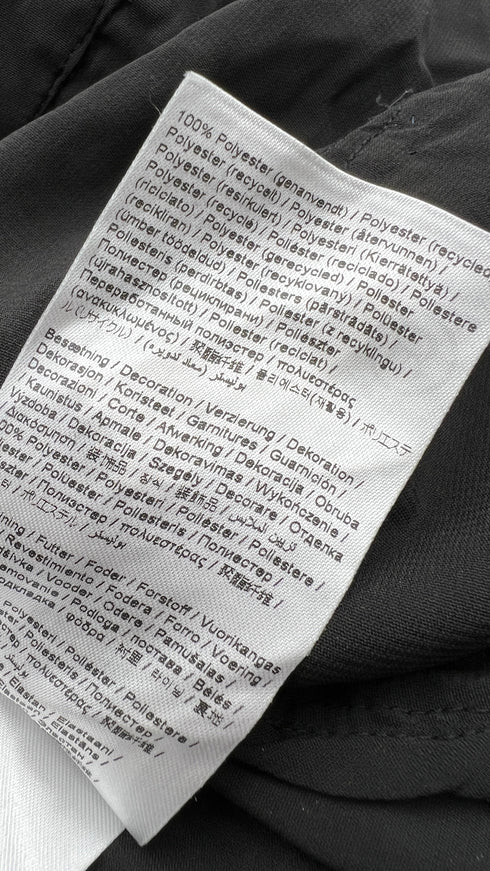 100% Polyester (genanvendt) / Polyester (recycled
Polyester (recycelt) / Polyester (återvunnen) /
Polyester (resirkulert) / Polyesteri (Kierrätettyä) /
Polyester (recyclé) / Poliéster (reciclado) / Poliestere
(riciclato) / Polyester (gerecycled) / Poliester
(recikliran) / Polyester (recyklovaný) / Polüester
(ümber töödeldud) / Poliesters (pārstrādāts) /
Poliesteris (perdirbtas) / Poliester (z recyklingu) /
Полиестер (рециклирани) / Poliészter
(újrahasznosított) / Poliester (reciclat) /
Переработанный полиэстер / πολυεστέρας
(ανακυκλωμένος) / 聚酯纤维 / 폴리에스터(재활용) / ポリエステ
ル (リサイクル) / بوليستر (معاد تدويره)
Besætning / Decoration / Verzierung / Dekoration
Dekorasjon / Koristeet / Garnitures / Guarnición /
Decorazioni / Corte / Afwerking / Dekoracija / Obruba
/ Kaunistus / Apmale / Dekoravimas / Wykończenie /
Výzdoba / Dekoracija / Szegely / Decorare / Отделка
Διακόσμηση / 装饰品 / 장식 / 装飾品 /
00% Polyester / Polyesteri / Poliéster / Poliestere /
ester / Polüester / Poliesteris / Полиестер /
szter / Полиэстер / πολυεστέρας / 聚酯纤维 /
터 / ポリエステル / بوليستر
ning / Futter / Foder / Forstoff / Vuorikangas
Revestimiento / Fodera / Forro / Voering /
ršívka / Vooder / Odere / Pamušalas /
Podloga / постава / Bélés /
одкладка / φόδρα / 衬里 / 안감 / 裏地 /
Polyesteri / Poliéster / Poliestere /
ster / Poliesteris / Полиестер /
πολυεστέρας / 聚酯纤维 /
Elastan / Elastaani /